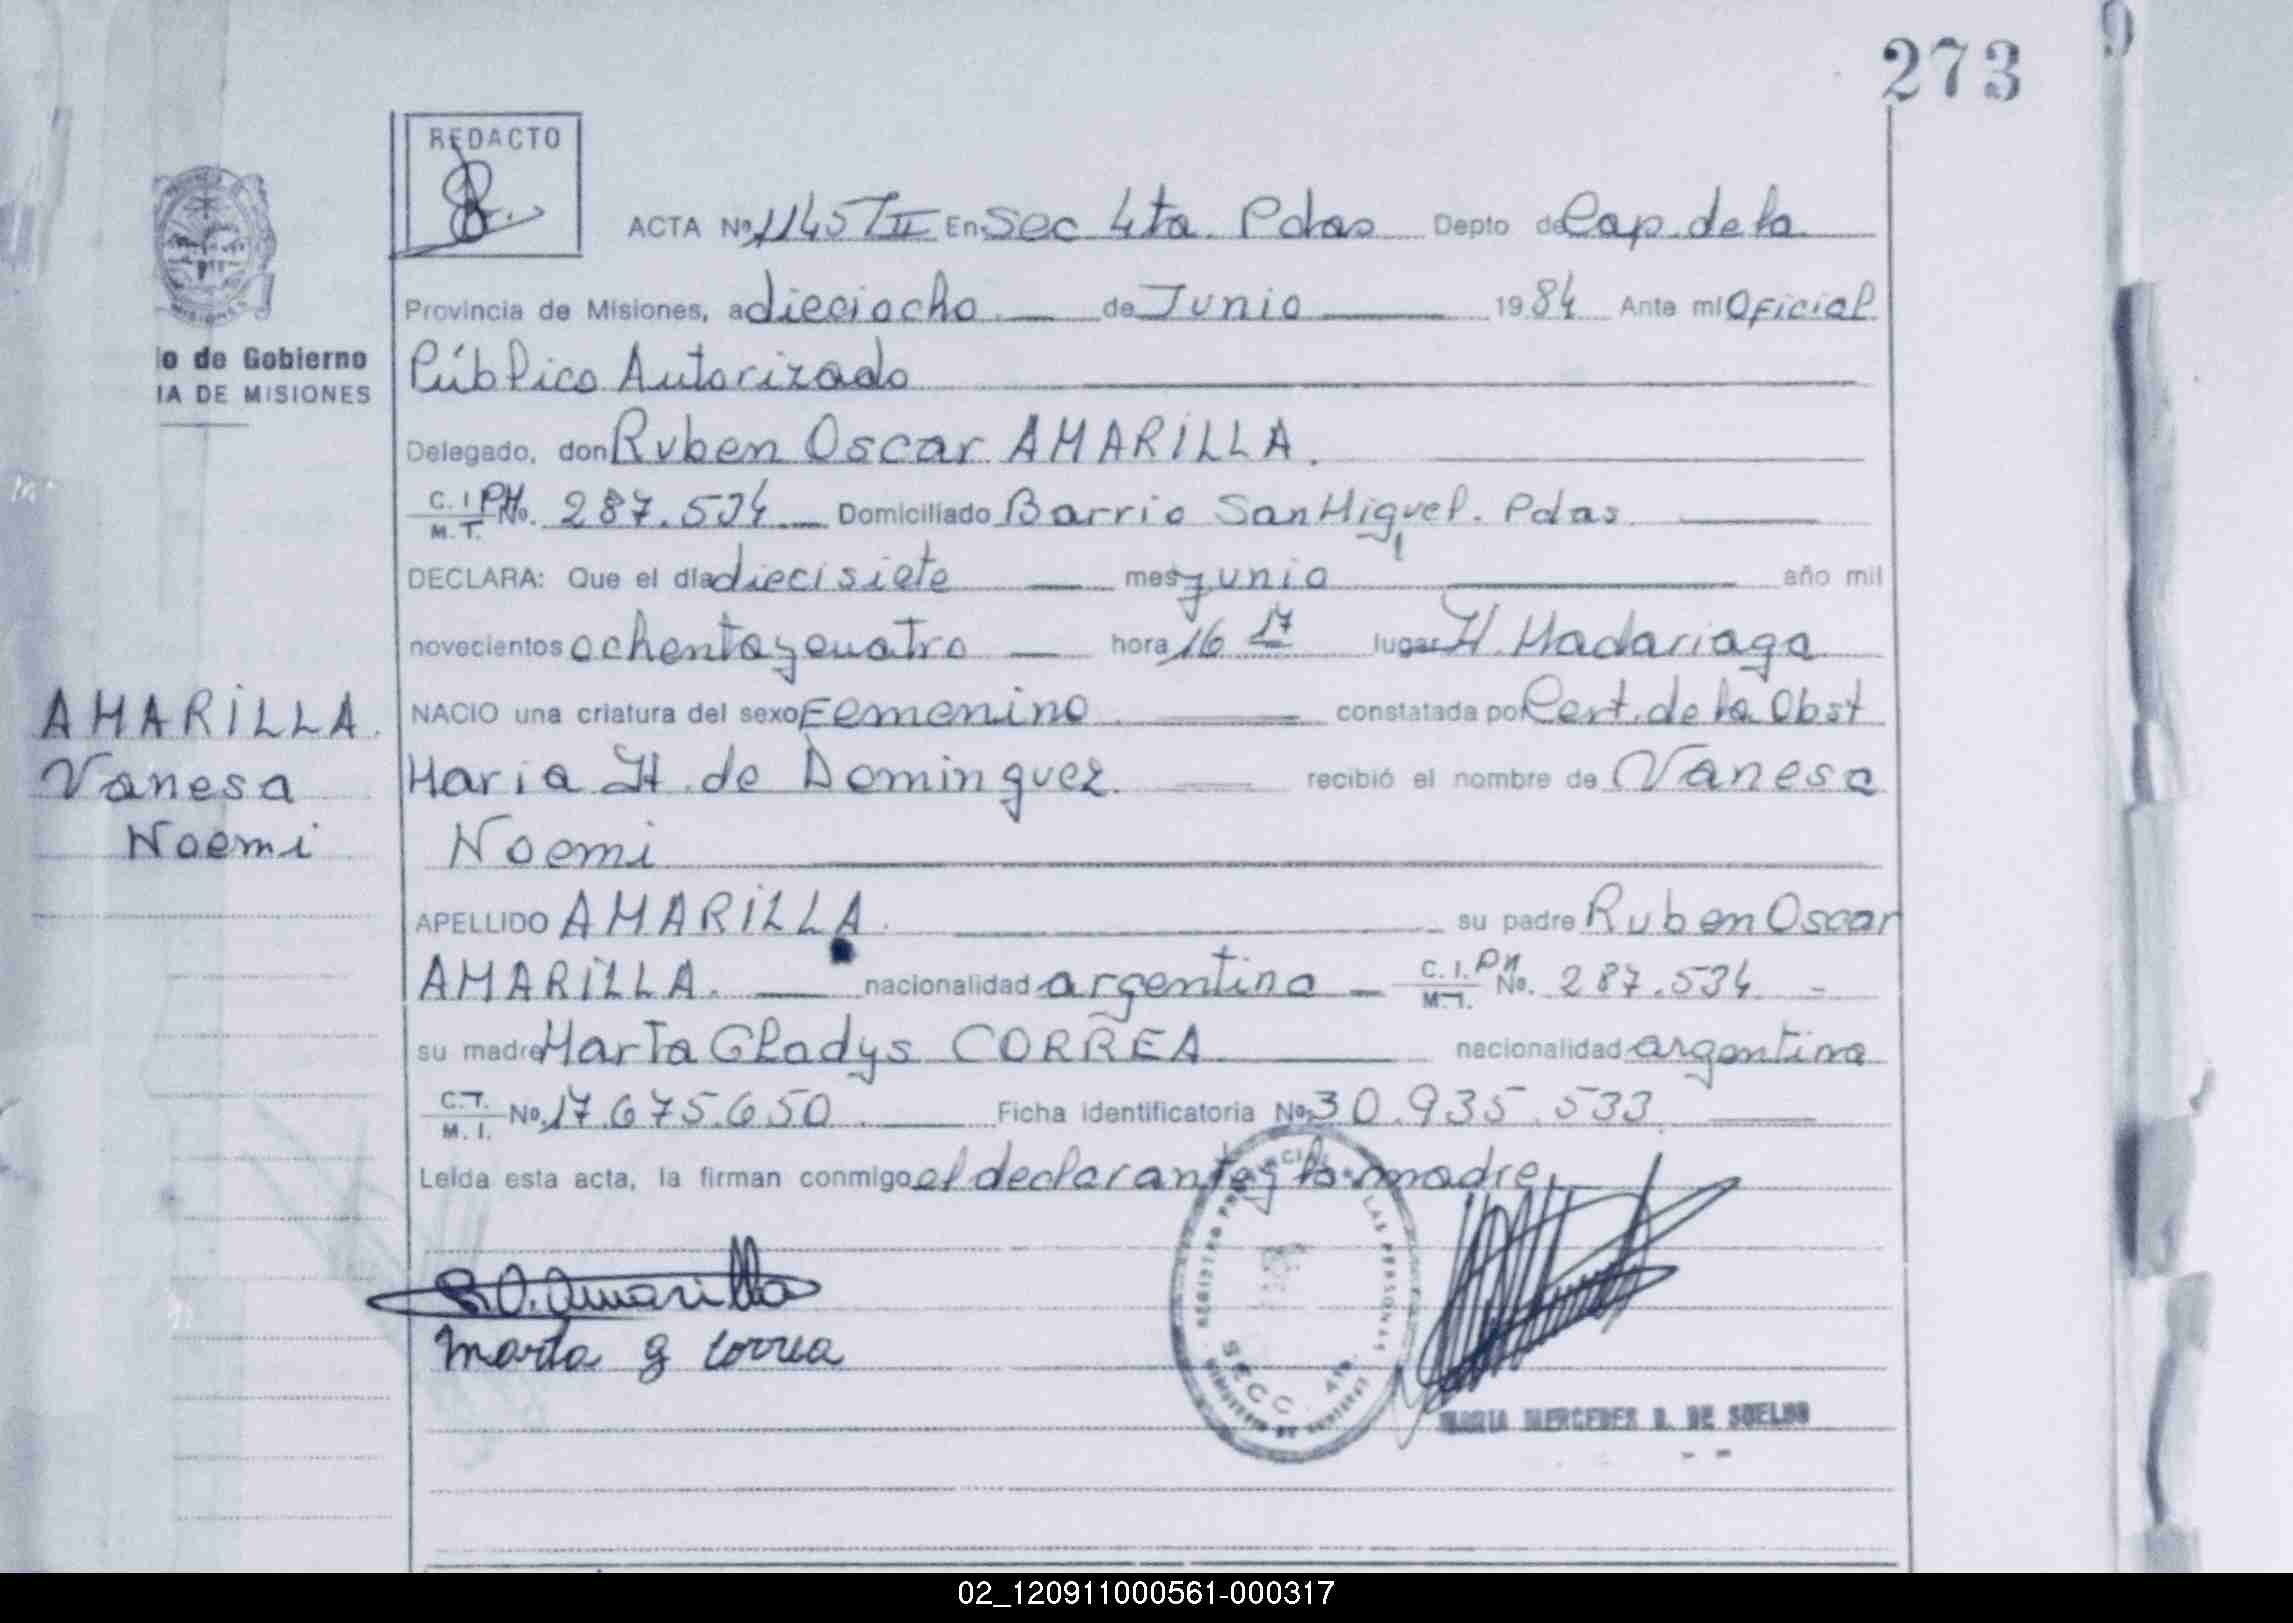 273
9
REDACTO
ACTA No 1145 T II En Sec 4ta Pdas Depto de Cap. de la
Provincia de Misiones, a dieciocho de Junio 1984 Ante mí Oficial
o de Gobierno
IA DE MISIONES
Público Autorizado
Delegado, don Ruben Oscar AMARILLA.
C. I. M. T. PM No. 287.534 Domiciliado Barrio San Miguel. Pdas.
DECLARA: Que el día diecisiete mes junio año mil
novecientos ochenta y cuatro hora 16 17 lugar H. Madariaga
NACIO una criatura del sexo Femenino constatada por Cert. de la Obst
Maria H. de Dominguez. recibió el nombre de Vanesa
Noemi
AMARILLA.
Vanesa
Noemi
APELLIDO AMARILLA. su padre Ruben Oscar
AMARILLA. nacionalidad argentina C. I. M. I. PM No. 287.534 -
su madre Marta Gladys CORREA nacionalidad argentina
C. I. M. I. No. 17.675.650. Ficha identificatoria No. 30.935.533
Leída esta acta, la firman conmigo el declarante y la madre.
R.O. Amarilla
Marta g correa
REGISTRO PROVINCIAL LAS PERSONAS
SECC. 4ta.
MARIA MERCEDES D. DE SUELDO
02_120911000561-000317